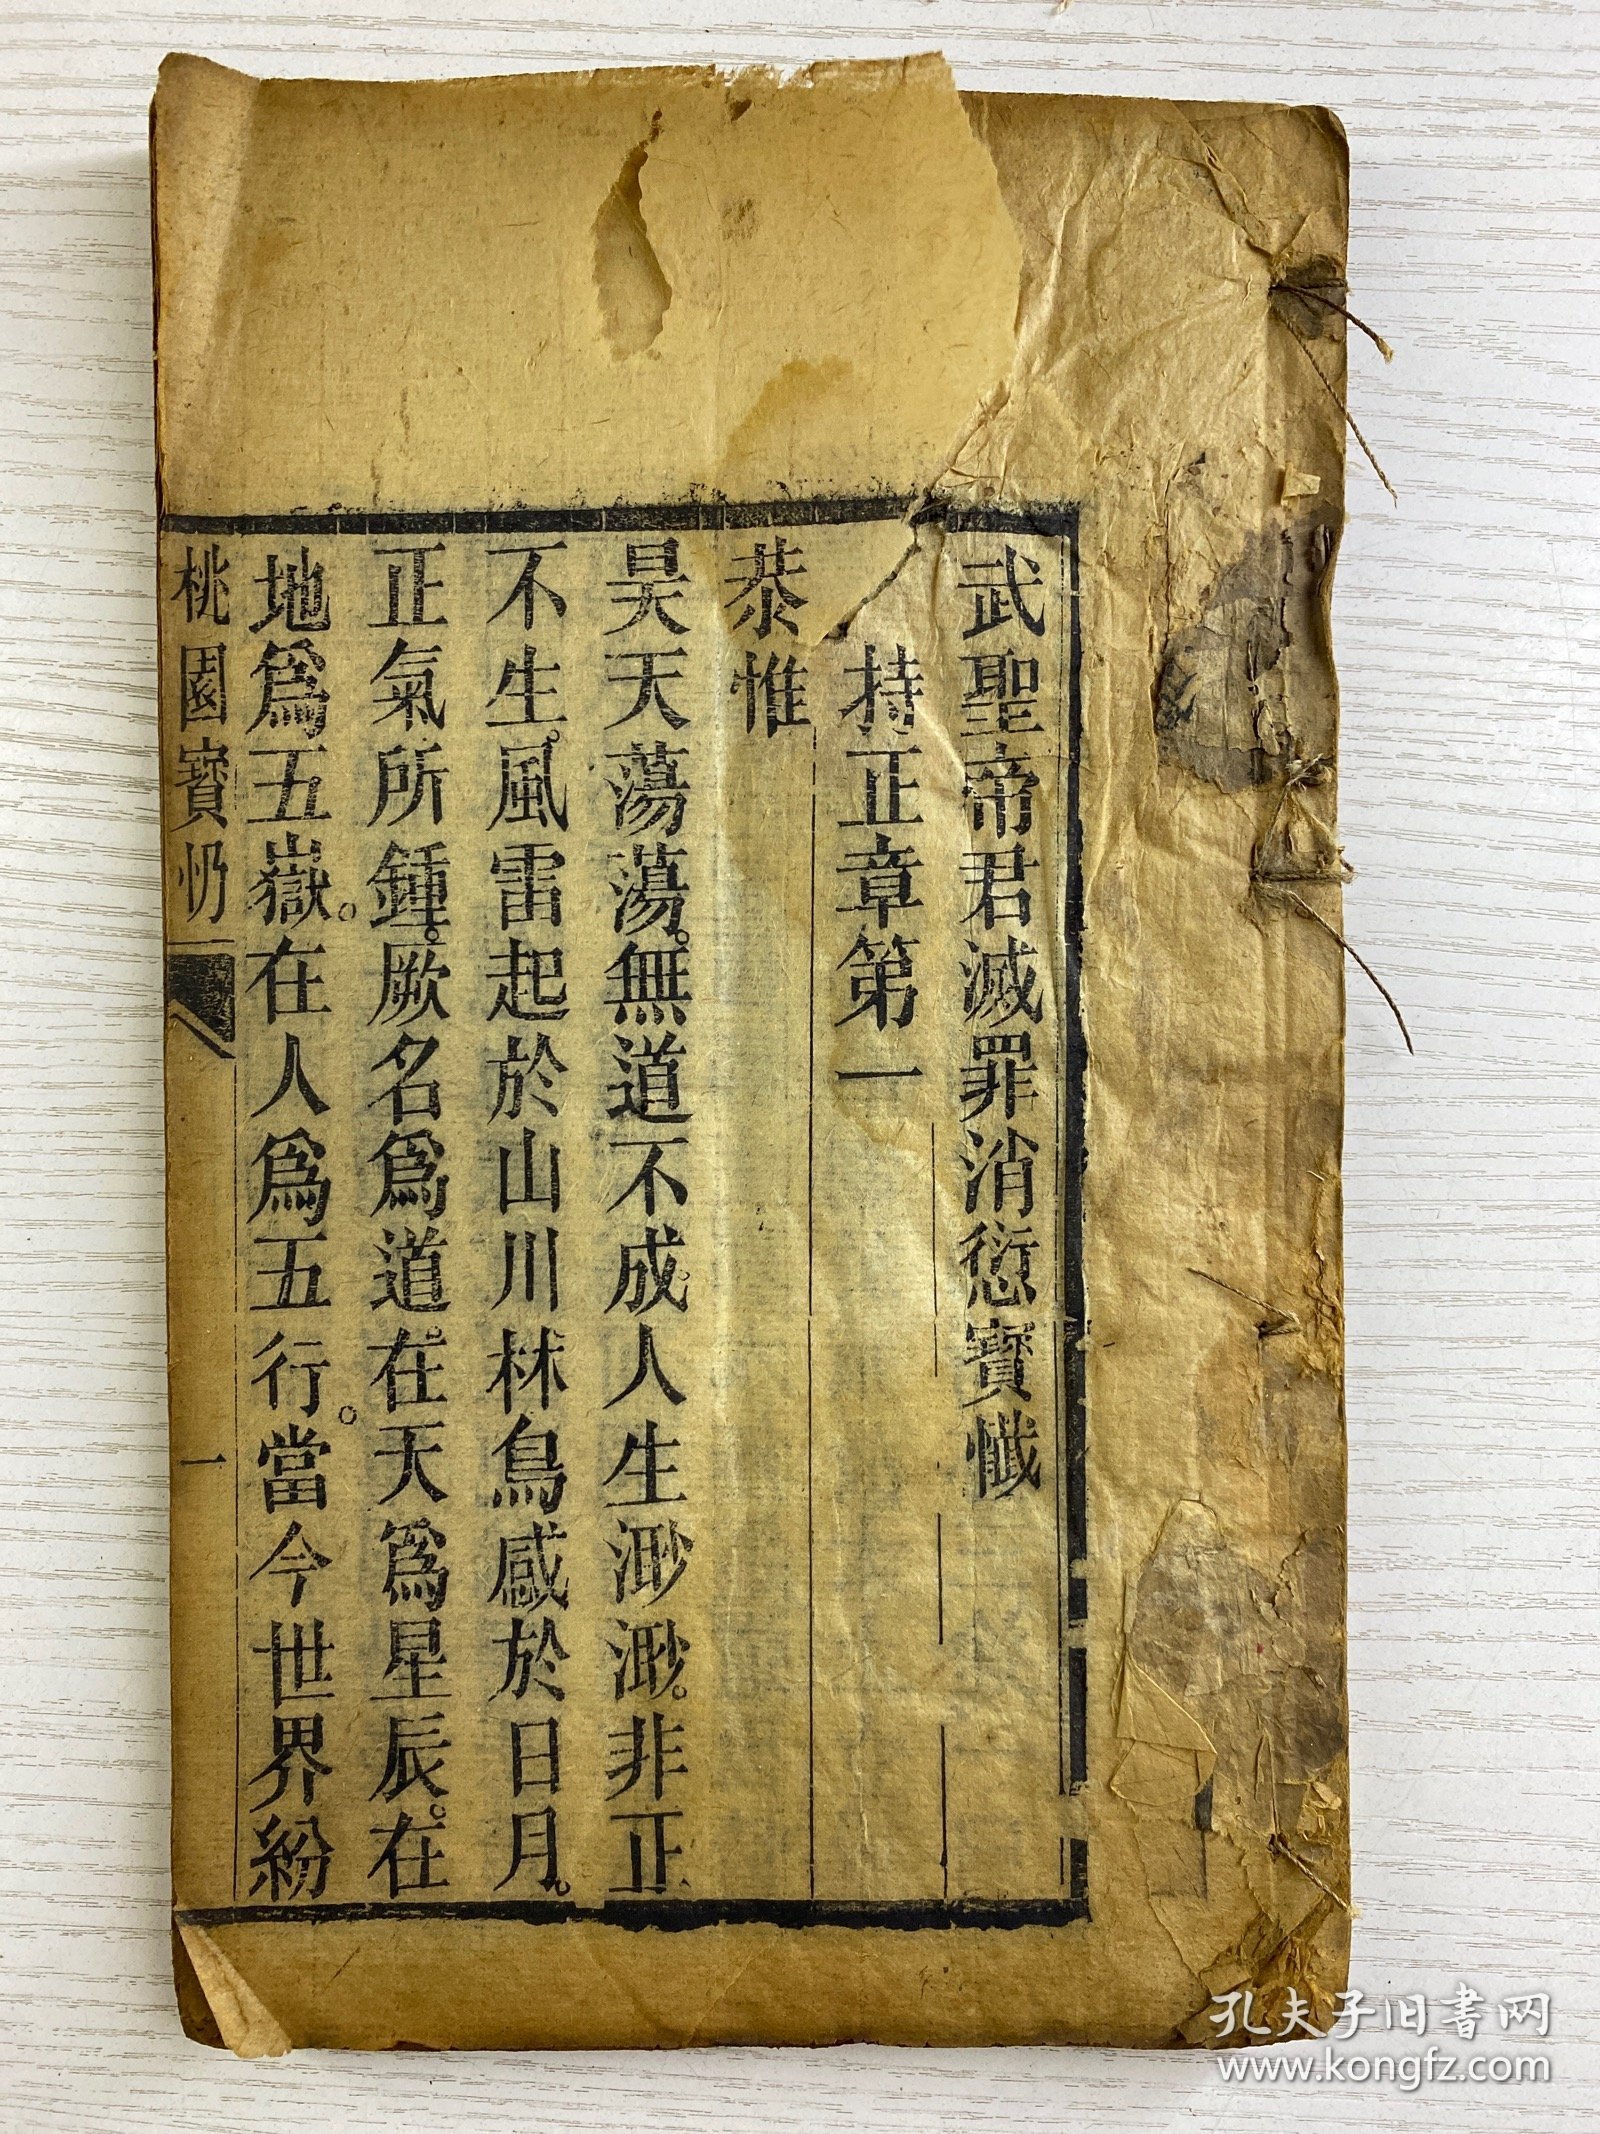 武聖帝君滅罪消愆寶懺
持正章第一
恭惟
昊天蕩蕩。無道不成。人生渺渺。非正
不生。風雷起於山川。林鳥感於日月。
正氣所鍾。厥名爲道。在天爲星辰。在
地爲五嶽。在人爲五行。當今世界紛
桃園寶
一
孔夫子旧书网
www.kongfz.com